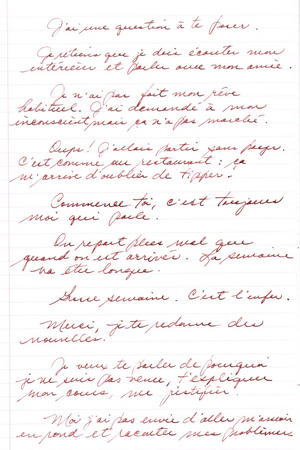 J'ai une question à te poser.
Je retiens que je dois écouter mon
intérieur et parler avec mon amie.
Je n'ai pas fait mon rêve
habituel. J'ai demandé à mon
inconscient mais ça n'a pas marché.
Oups! J'allais partir sans payer.
C'est comme au restaurant: ça
m'arrive d'oublier de tipper.
Commence toi, c'est toujours
moi qui parle.
On repart plus mal que
quand on est arrivés. La semaine
va être longue.
Une semaine. C'est l'enfer.
Merci, je te redonne des
nouvelles.
Je veux te parler de pourquoi
je ne suis pas venue, t'expliquer
mon cours, me justifier.
Moi j'ai pas envie d'aller m'asseoir
en rond et raconter mes problèmes.